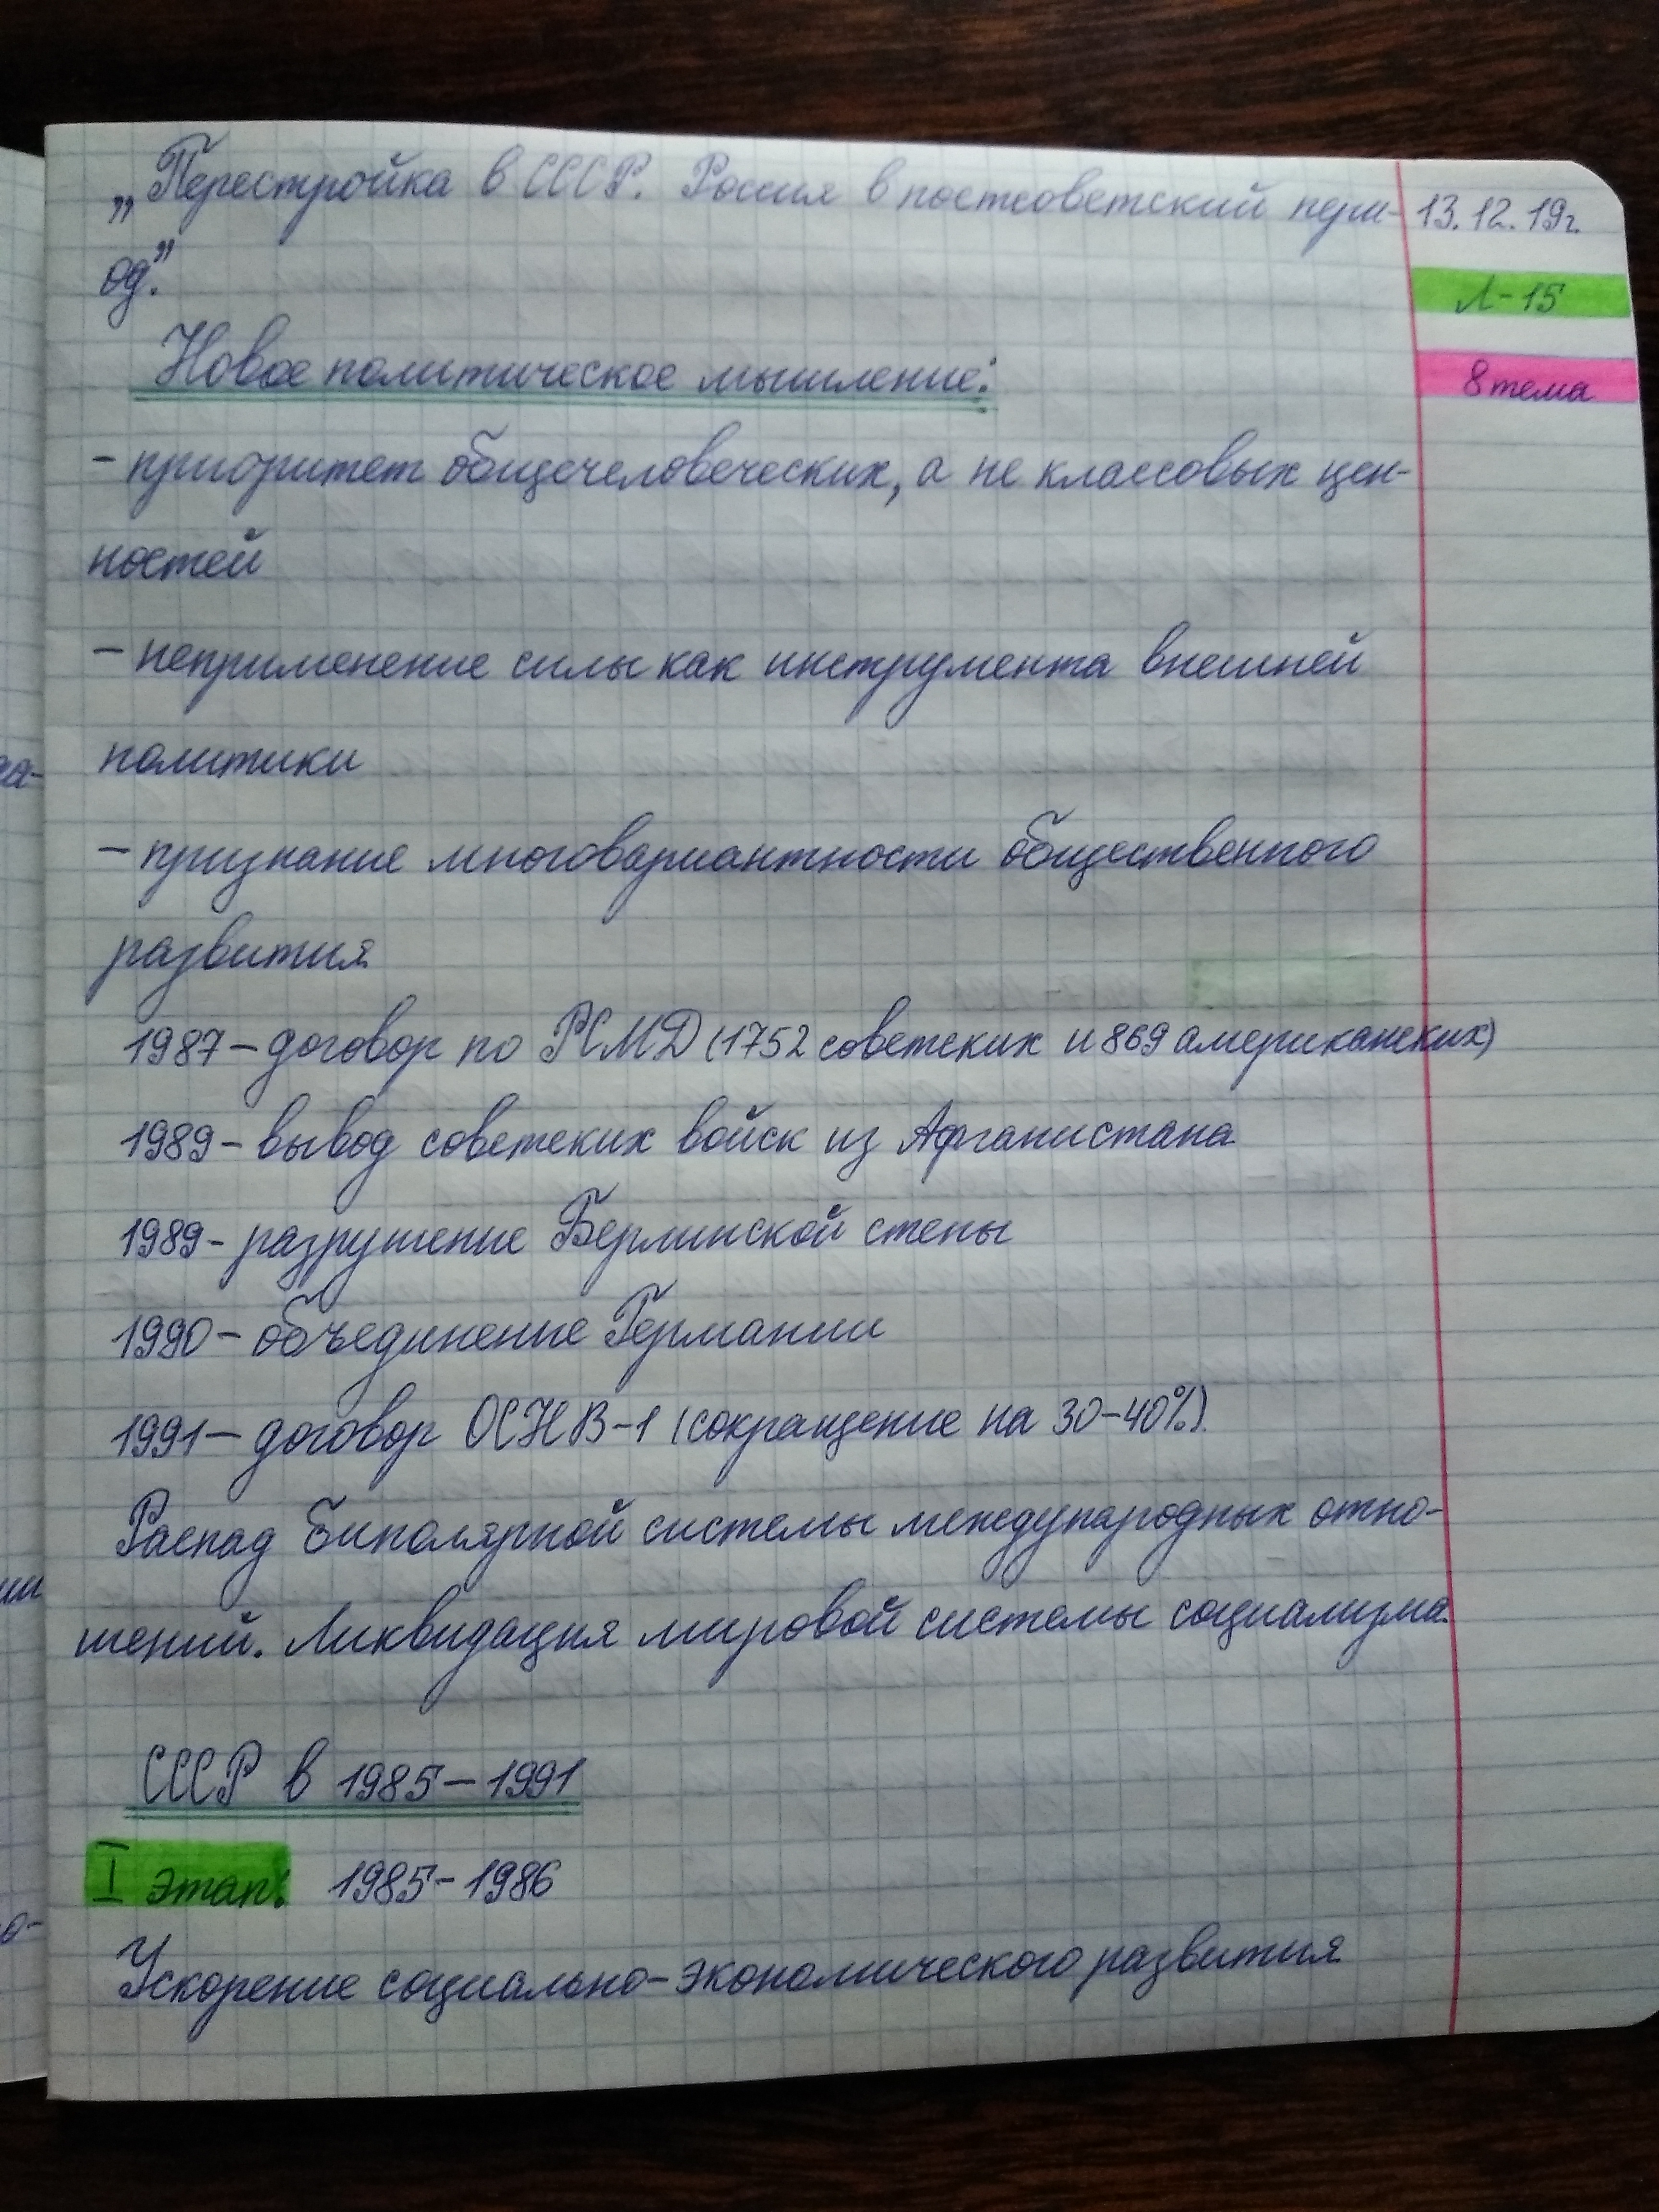 „Перестройка в СССР. Россия в постсоветский пери- 13.12.19г.
од.”
Л-15
Новое политическое мышление:
8 тема
- приоритет общечеловеческих, а не классовых цен-
ностей
- неприменение силы как инструмента внешней
политики
- признание многовариантности общественного
развития
1987 – договор по РСМД (1752 советских и 869 американских)
1989 – вывод советских войск из Афганистана
1989 - разрушение Берлинской стены
1990 – объединение Германии
1991 – договор ОСНВ-1 (сокращение на 30-40%).
Распад биполярной системы международных отно-
шений. Ликвидация мировой системы социализма.
СССР в 1985 – 1991
I этап: 1985 - 1986
Ускорение социально-экономического развития